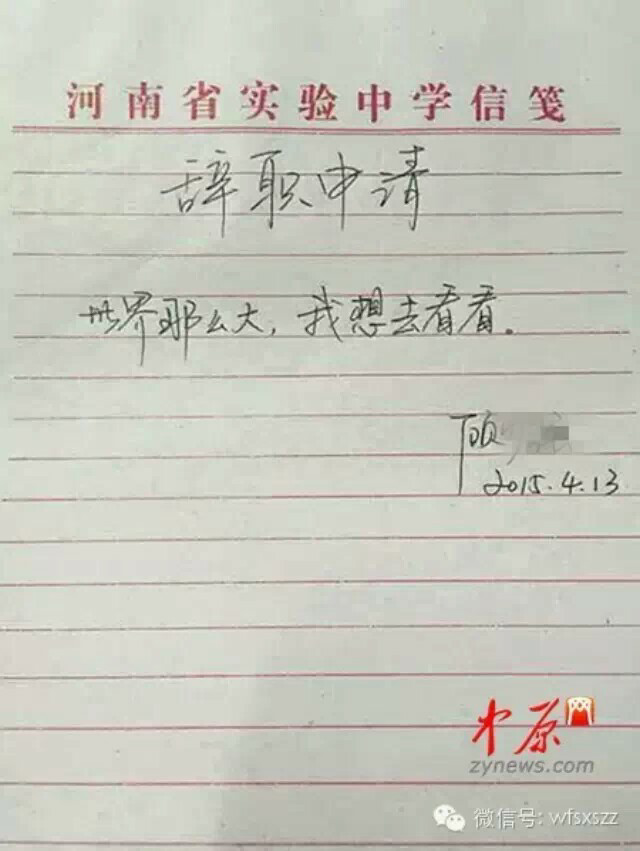 河南省实验中学信笺
辞职申请
世界那么大，我想去看看。
顾
2015.4.13
中原网
zynews.com
微信号: wfsxszz